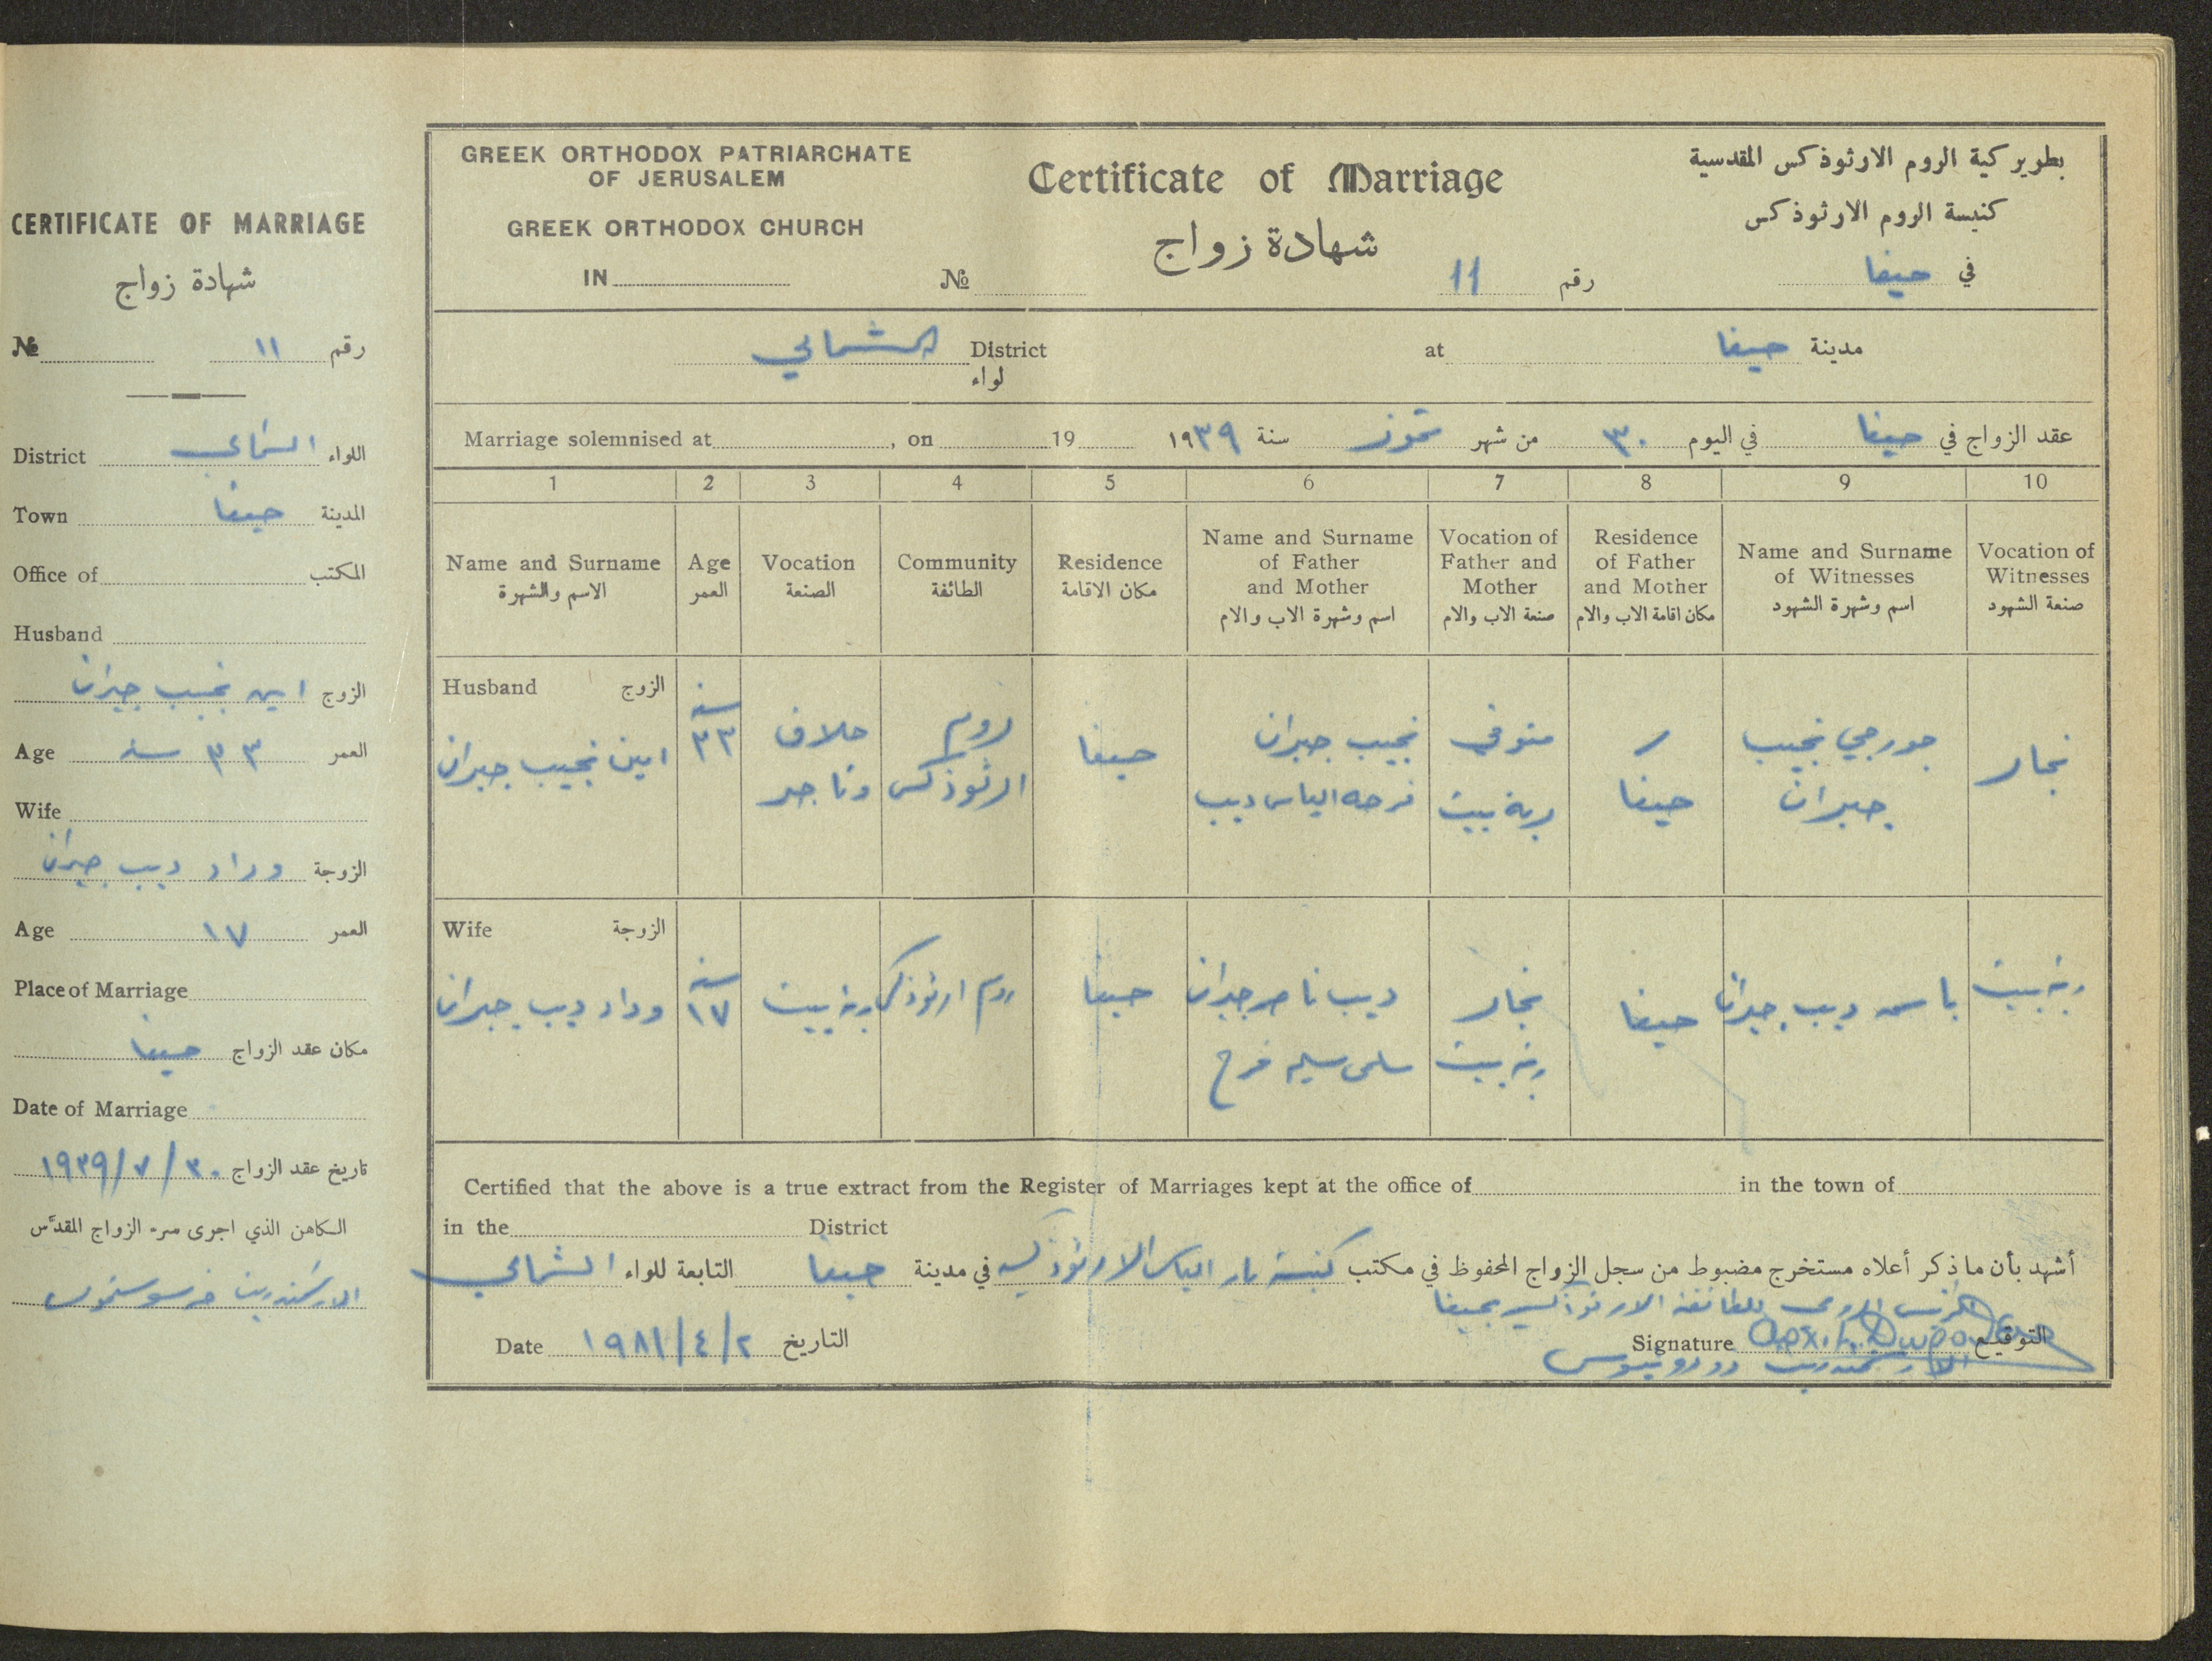 CERTIFICATE OF MARRIAGE
شهادة زواج
№ رقم ١١
District اللواء الشمالي
Town المدينة حيفا
Office of المكتب
Husband
الزوج امين نجيب جبران
Age العمر ٣٣ سنة
Wife
الزوجة وداد ديب جبران
Age العمر ١٧
Place of Marriage
مكان عقد الزواج حيفا
Date of Marriage
تاريخ عقد الزواج ٣٠/٧/١٩٣٩
الكاهن الذي اجرى سر الزواج المقدّس
الارشمندريت
GREEK ORTHODOX PATRIARCHATE
OF JERUSALEM
GREEK ORTHODOX CHURCH
IN
Certificate of Marriage
شهادة زواج
№ رقم 11
بطوير كية الروم الارثوذ كس المقدسية
كنيسة الروم الارثوذ كس
في حيفا
مدينة حيفا at District الشمالي
لواء
Marriage solemnised at , on 19
عقد الزواج في حيفا في اليوم ٣٠ من شهر تموز سنة ١٩٣٩
1 2 3 4 5 6 7 8 9 10
Name and Surname
الاسم والشهرة
Age
العمر
Vocation
الصنعة
Community
الطائفة
Residence
مكان الاقامة
Name and Surname
of Father
and Mother
اسم وشهرة الاب والام
Vocation of
Father and
Mother
صنعة الاب والام
Residence
of Father
and Mother
مكان اقامة الاب والام
Name and Surname
of Witnesses
اسم وشهرة الشهود
Vocation of
Witnesses
صنعة الشهود
Husband الزوج
امين نجيب جبران
سنة
٣٣
حلاق
وتاجر
روم
ارثوذكس
حيفا
نجيب جبران
فرحه الياس ديب
متوفي
ربة بيت
حيفا
جورجي نجيب
جبران
نجار
Wife الزوجة
وداد ديب جبران
سنة
١٧
ربة بيت
روم ارثوذكس
حيفا
ديب ناصر جبران
سلمى سليم فرح
نجار
ربة بيت
حيفا
باسمه ديب جبران
ربة بيت
Certified that the above is a true extract from the Register of Marriages kept at the office of in the town of
in the District
أشهد بأن ما ذكر أعلاه مستخرج مضبوط من سجل الزواج المحفوظ في مكتب كنيسة مار الياس الارثوذكسية في مدينة حيفا التابعة للواء الشمالي
الرئيس الروحي للطائفة الارثوذكسية بحيفا
Date التاريخ ٢/٤/١٩٨١
Signature التوقيع
الارشمندريت